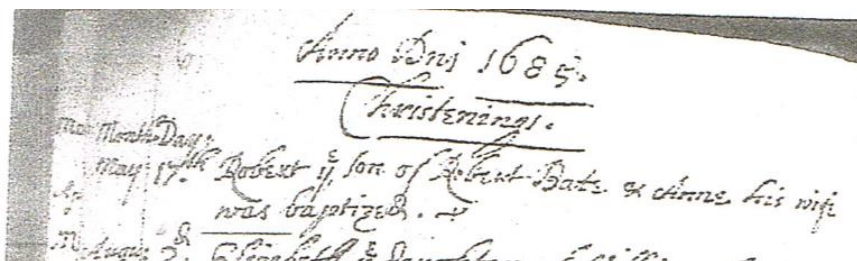 Anno Dnj 1685.
Christenings.
Month Day:
May 17th Robert ye son of Robert Bate & Anne his wife
was baptized.
August 2d Elizabeth ye daughter of